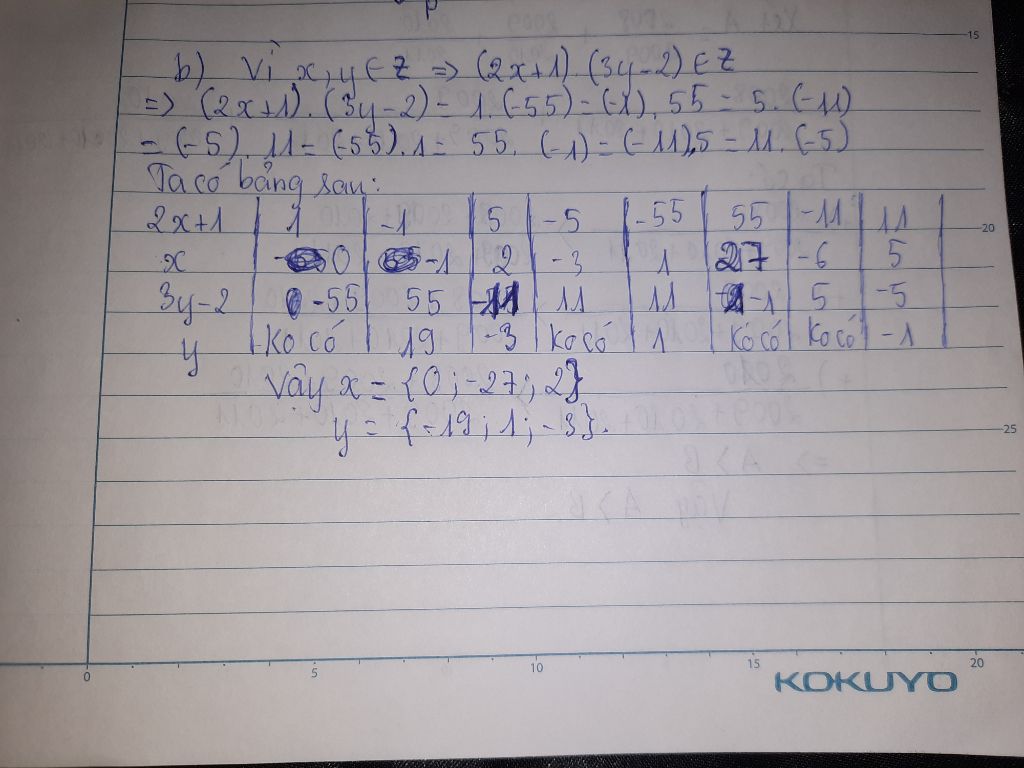 b) Vì x, y ∈ Z => (2x+1). (3y-2) ∈ Z
=> (2x+1). (3y-2) = 1. (-55) = (-1). 55 = 5. (-11)
= (-5). 11 = (-55). 1 = 55. (-1) = (-11).5 = 11. (-5)
Ta có bảng sau:
2x+1 1 -1 5 -5 -55 55 -11 11
x 0 -1 2 -3 1 27 -6 5
3y-2 -55 55 -11 11 11 -1 5 -5
y Ko có 19 -3 Ko có 1 Ko có Ko có -1
Vây x = {0; -27; 2}
y = {-19; 1; -3}.
15
20
25
0 5 10 15 20
KOKUYO